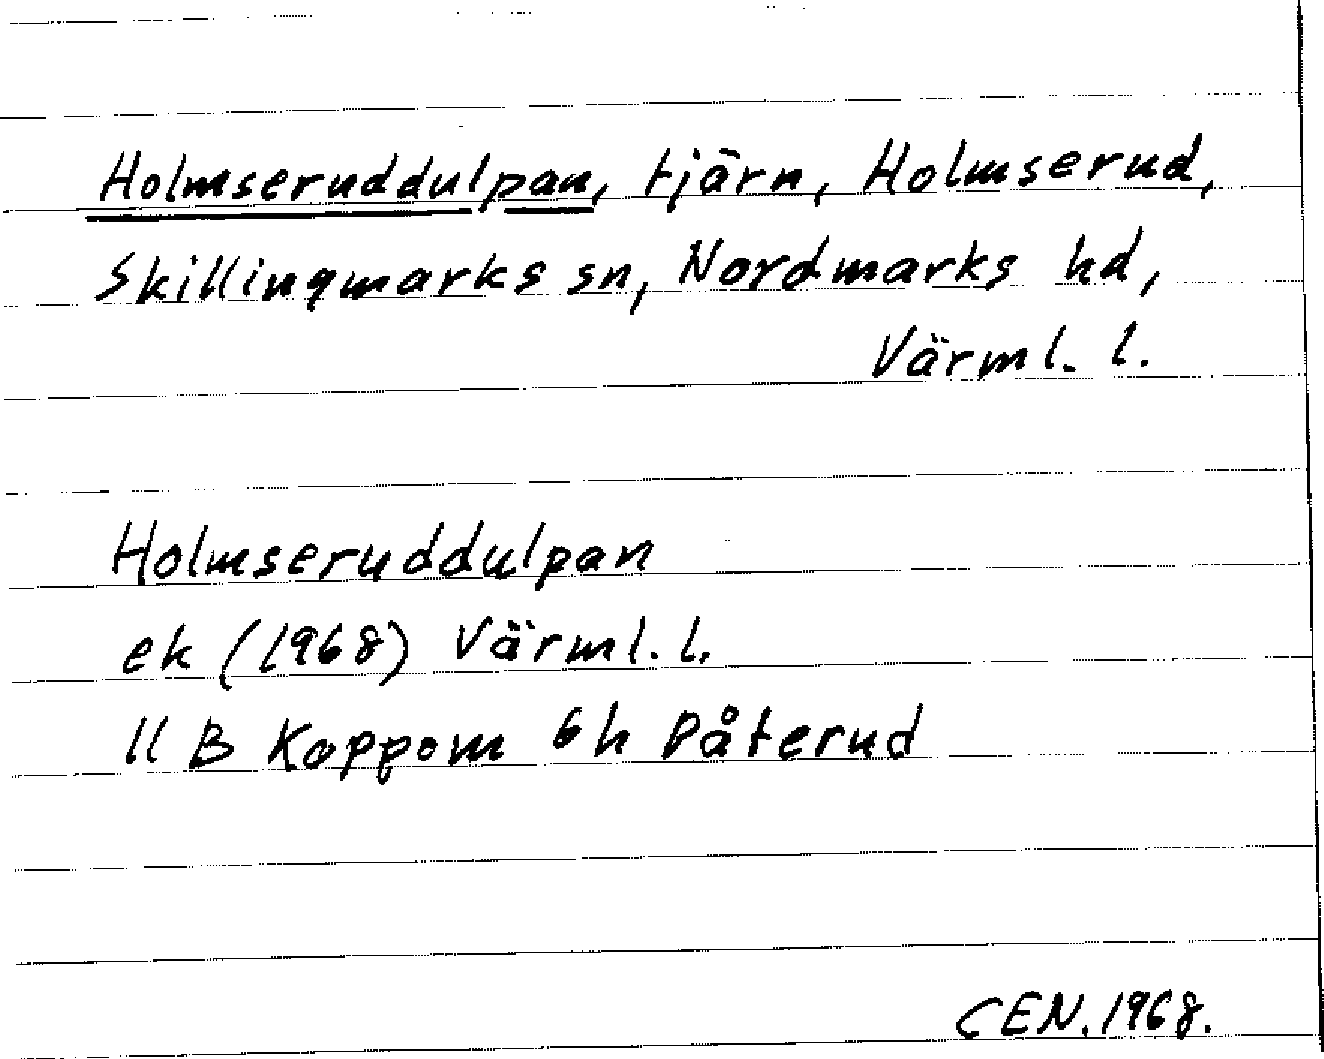 Holmseruddulpan, tjärn, Holmserud,
Skillingmarks sn, Nordmarks hd,
Värml. l.
Holmseruddulpan
ek (1968) Värml. l.
11 B Koppom 6h Påterud
CEN. 1968.